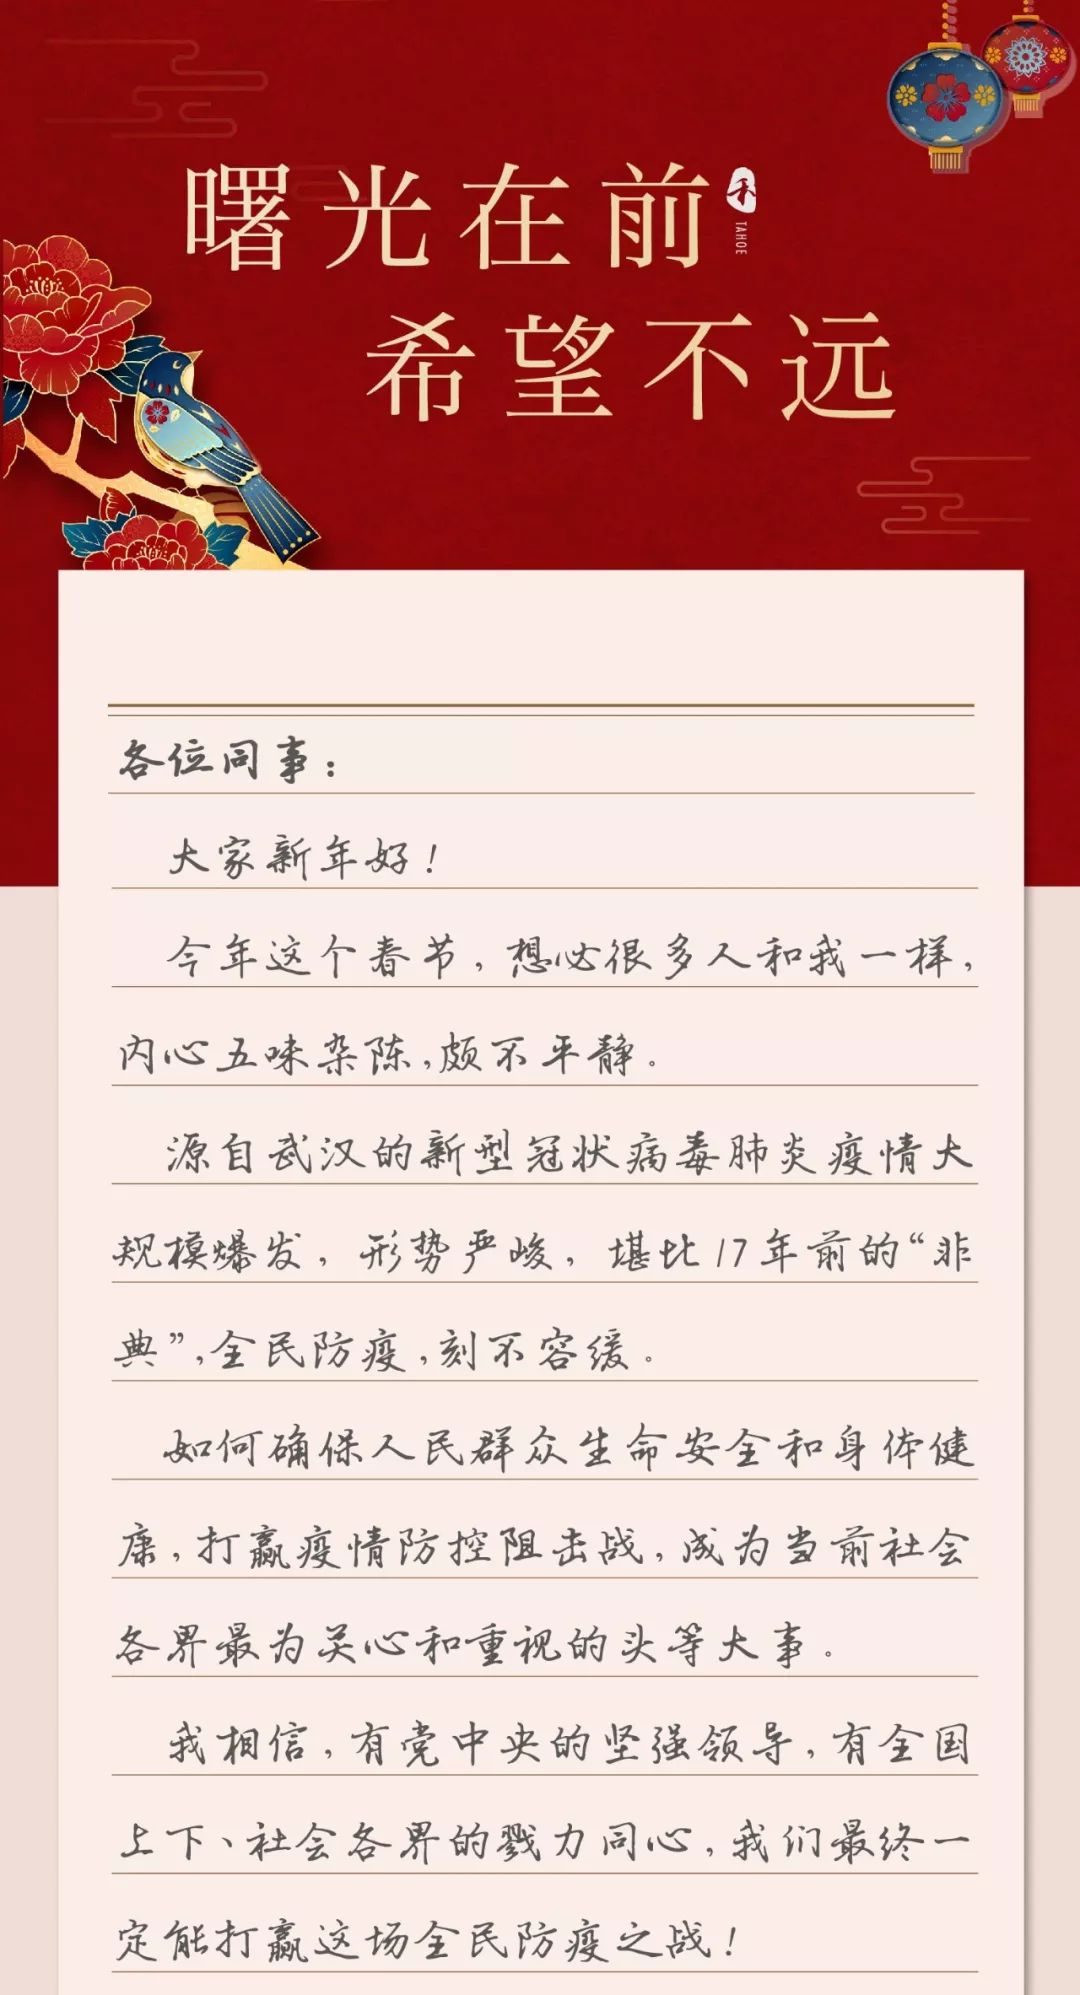 曙光在前
禾
TAHOE
希望不远
各位同事：
大家新年好！
今年这个春节，想必很多人和我一样，
内心五味杂陈，颇不平静。
源自武汉的新型冠状病毒肺炎疫情大
规模爆发，形势严峻，堪比17年前的“非
典”，全民防疫，刻不容缓。
如何确保人民群众生命安全和身体健
康，打赢疫情防控阻击战，成为当前社会
各界最为关心和重视的头等大事。
我相信，有党中央的坚强领导，有全国
上下、社会各界的戮力同心，我们最终一
定能打赢这场全民防疫之战！